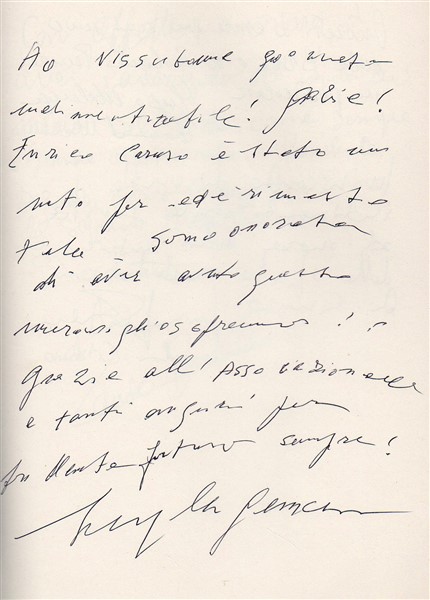 Ho vissuto una giornata
indimenticabile! Grazie!
Enrico Caruso è stato un
mito per ed è rimasto
tale Sono onorata
di aver avuto questo
meraviglioso premio!
Grazie all'Associazione
e tanti auguri per
futuro sempre!
Leyla Gencer